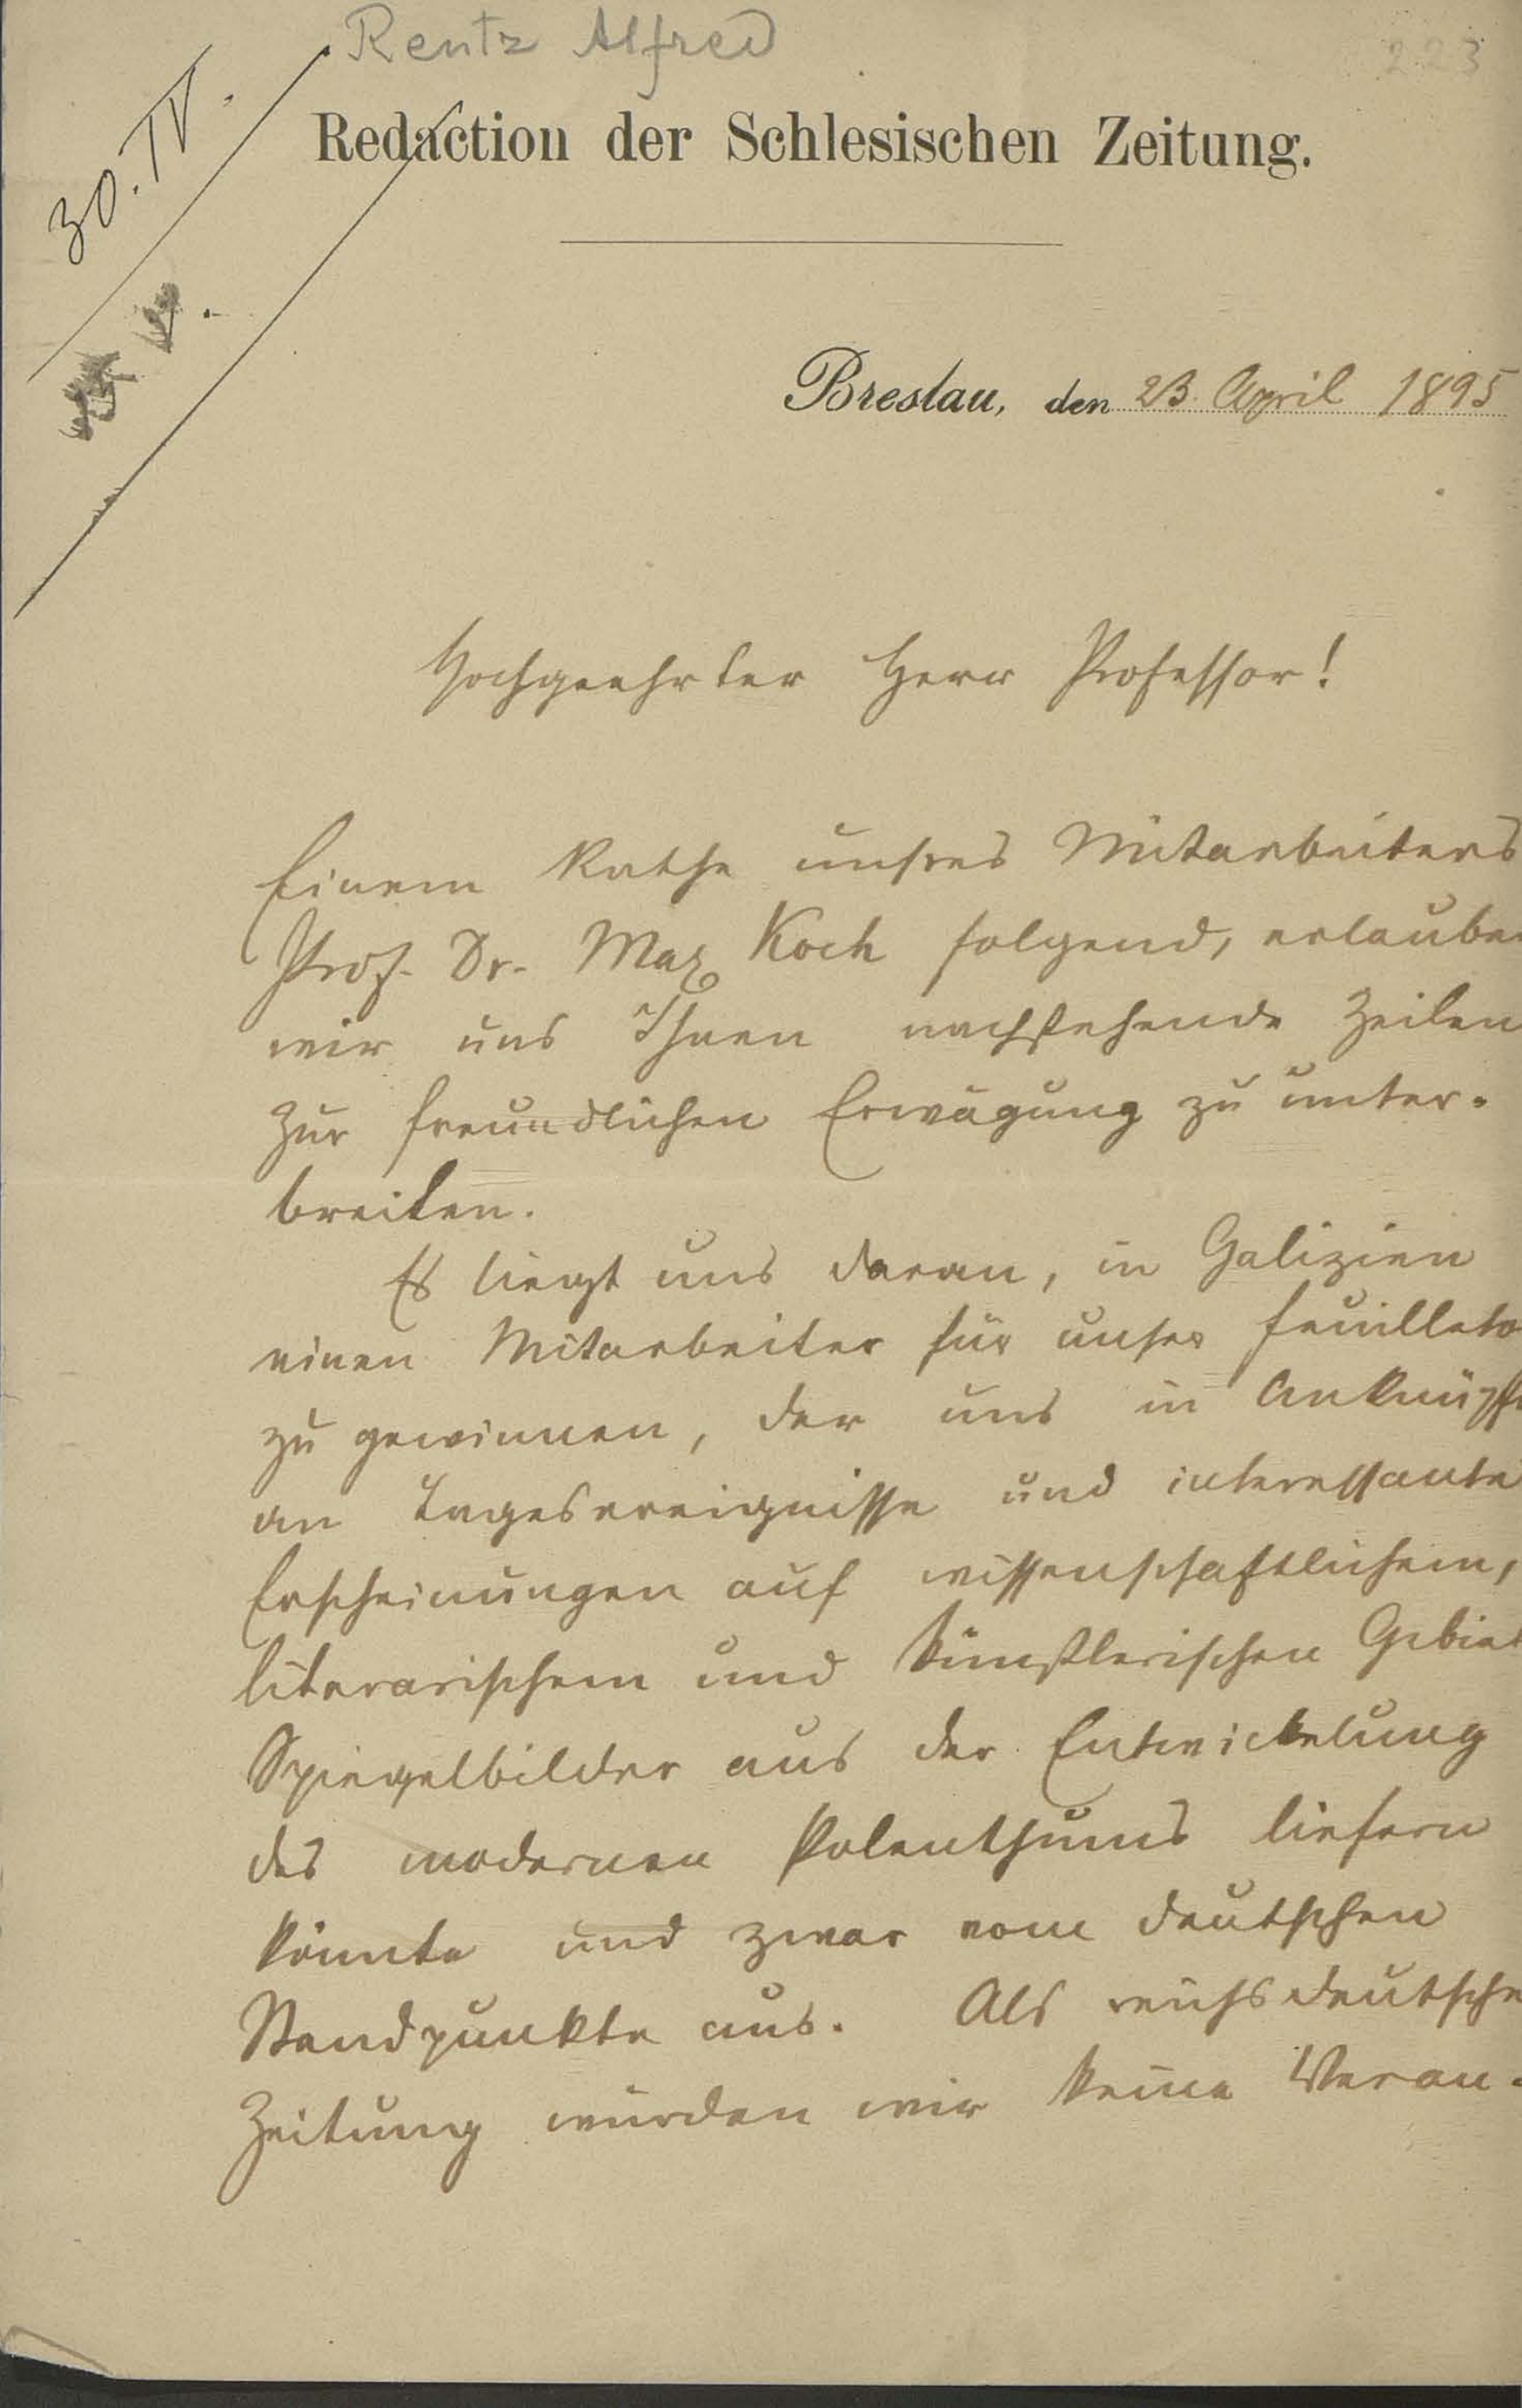 Rentz Alfred
223
30. IV.
Redaction der Schlesischen Zeitung.
Breslau, den 23. April 1895
Hochgeehrter Herr Professor!
Einem Rathe unsres Mitarbeiters
Prof. Dr. Max Koch folgend, erlauben
wir uns Ihnen nachstehende Zeilen
zur freundlichen Erwägung zu unter-
breiten.
Es liegt uns daran, in Galizien
einen Mitarbeiter für unser Feuilleto
zu gewinnen, der uns in Anknüpf
an Tagesereignisse und interessante
Erscheinungen auf wissenschaftlichem,
literarischem und künstlerischen Gebiet
Spiegelbilder aus der Entwickelung
des modernen Polenthums liefern
könnte und zwar vom deutschen
Standpunkte aus. Als reichsdeutsche
Zeitung würden wir keine Veran-